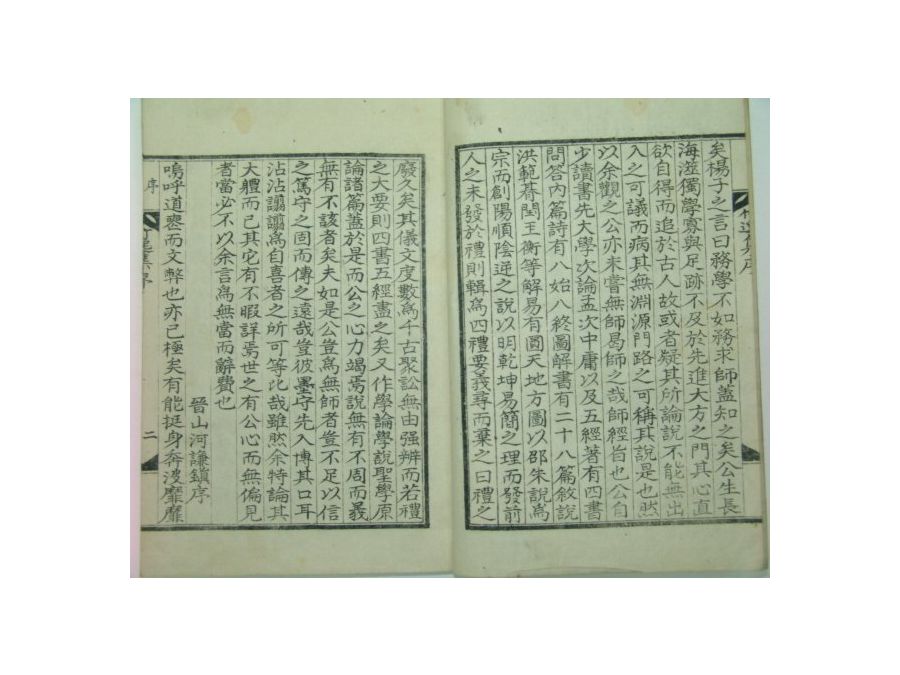 矣楊子之言曰務學不如務求師蓋知之矣公生長
海澨獨學寡與足跡不及於先進大方之門其心直
欲自得而追於古人故或者疑其所論說不能無出
入之可議而病其無淵源門路之可稱其說是也然
以余觀之公亦未嘗無師曷師之哉師經旨也公自
少讀書先大學次論孟次中庸以及五經著有四書
問答內篇詩有八始八終圖解書有二十八篇敘說
洪範朞閏玉衡等解易有圓天地方圖以邵朱說爲
宗而創陽順陰逆之說以明乾坤易簡之理而發前
人之未發於禮則輯爲四禮要義尋而棄之曰禮之
廢久矣其儀文度數爲千古聚訟無由强辨而若禮
之大要則四書五經盡之矣又作學論學說聖學原
論諸篇蓋於是而公之心力竭焉說無有不周而義
無有不該者矣夫如是公豈爲無師者豈不足以信
之篤守之固而傳之遠哉豈彼墨守先入博其口耳
沾沾讘讘爲自喜者之所可等比哉雖然余特論其
大軆而已其它有不暇詳焉世之有公心而無偏見
者當必不以余言爲無當而辭費也
晉山河謙鎭序
嗚呼道喪而文弊也亦已極矣有能挺身奔波靡靡
序
二